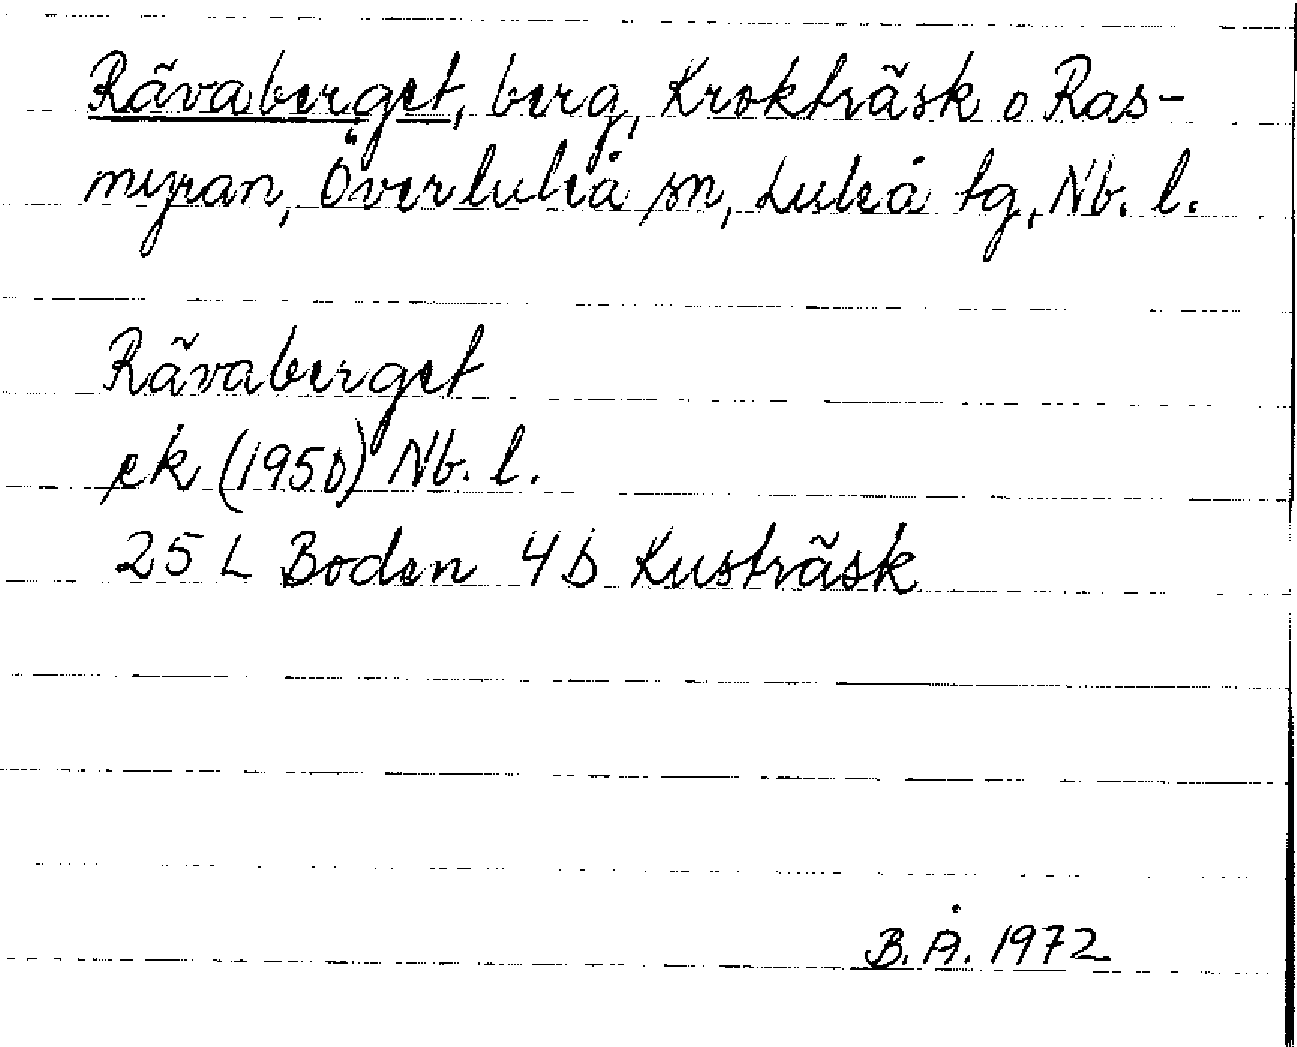 Rävaberget, berg, Krokträsk o Ras-
myran, Överluleå sn, Luleå tg, Nb. l.
Rävaberget
ek (1950) Nb. l.
25 L Boden 4 b Kusträsk
B. Å. 1972